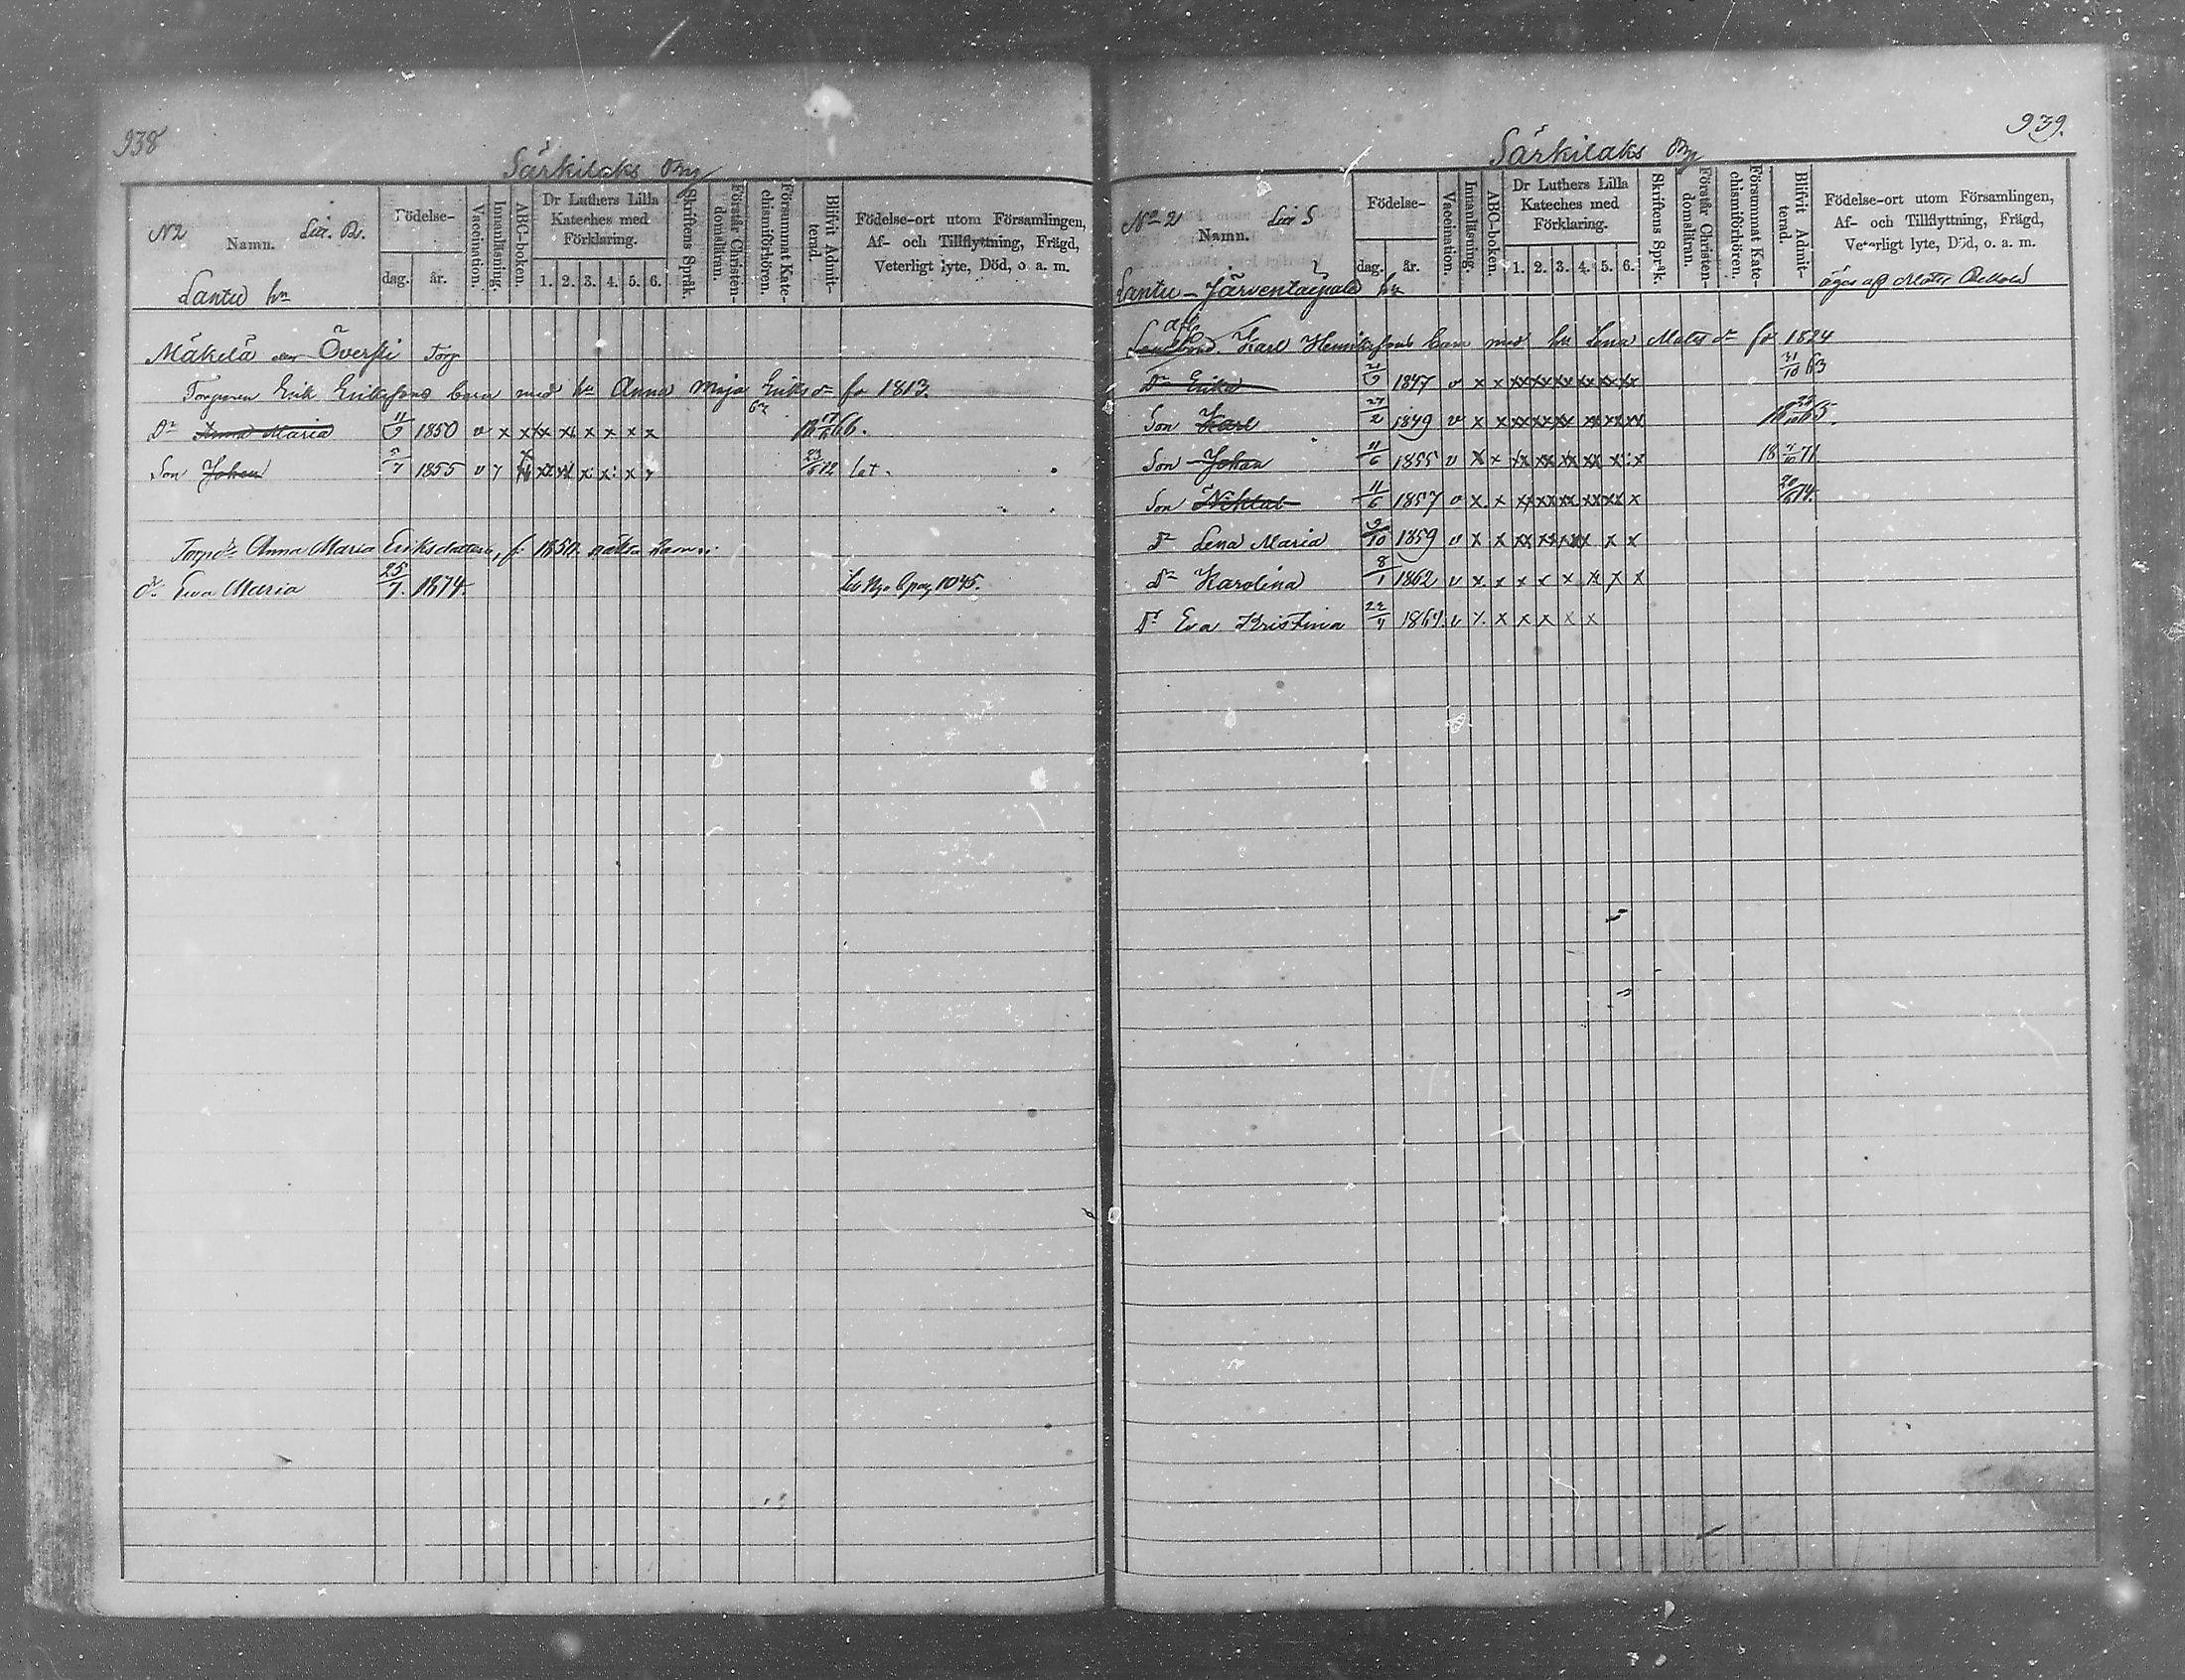 938
Särkilaks By
N2 Namn. Lir. R.
Födelse-
dag. år.
Vaccination.
Innanläsning.
ABC-boken.
Dr Luthers Lilla Kateches med Förklaring.
1. 2. 3. 4. 5. 6.
Skriftens Språk.
Förstår Christen-domsläran.
Försummat Kate-chismiförhören.
Blifvit Admit-terad.
Födelse-ort utom Församlingen,
Af- och Tillflyttning, Frägd,
Veterligt lyte, Död, o. a. m.
Lantu hn
Mäkelä Öfverfti Torp
Torparen Erik Eriksfons barn med hu Anna Maja Eriks dr fr 1813.
Dr Anna Maria 11/9 1850 v x x x x x x x x 66.
Son Johan 5/7 1855 v x x x x x x 23/6 72 lat.
Torpdr Anna Maria Eriksdotters, f. 1850
dr Eva Maria 25/7. 1874. pag 1045.
939.
Särkilaks By
No 2 Namn. Lir S
Födelse-
dag. år.
Vaccination.
Innanläsning.
ABC-boken.
Dr Luthers Lilla Kateches med Förklaring.
1. 2. 3. 4. 5. 6.
Skriftens Språk.
Förstår Christen-domsläran.
Försummat Kate-chismiförhören.
Blifvit Admit-terad.
Födelse-ort utom Församlingen,
Af- och Tillflyttning, Frägd,
Veterligt lyte, Död, o. a. m.
Lantu - Järventaipale hn
äges af Mats
afl Karl Henriksfons barn med hu Lena Mats dr fr 1824
Dr Erika 21/9 1847 v x x xx xx xx xx xx xx 31/10 63
Son Karl 27/2 1849 v x x xx xx xx xx xx xx 65.
Son Johan 11/6 1855 v x x xx xx xx xx x x 71
Son Niklas 11/6 1857 v x x xx xx xx xx xx x 74.
Dr Lena Maria 9/10 1859 v x x xx xx xx x x
Dr Karolina 8/1 1862 v x x x x x x x x
Dr Eva Kristina 22/4 1864. v x x x x x x